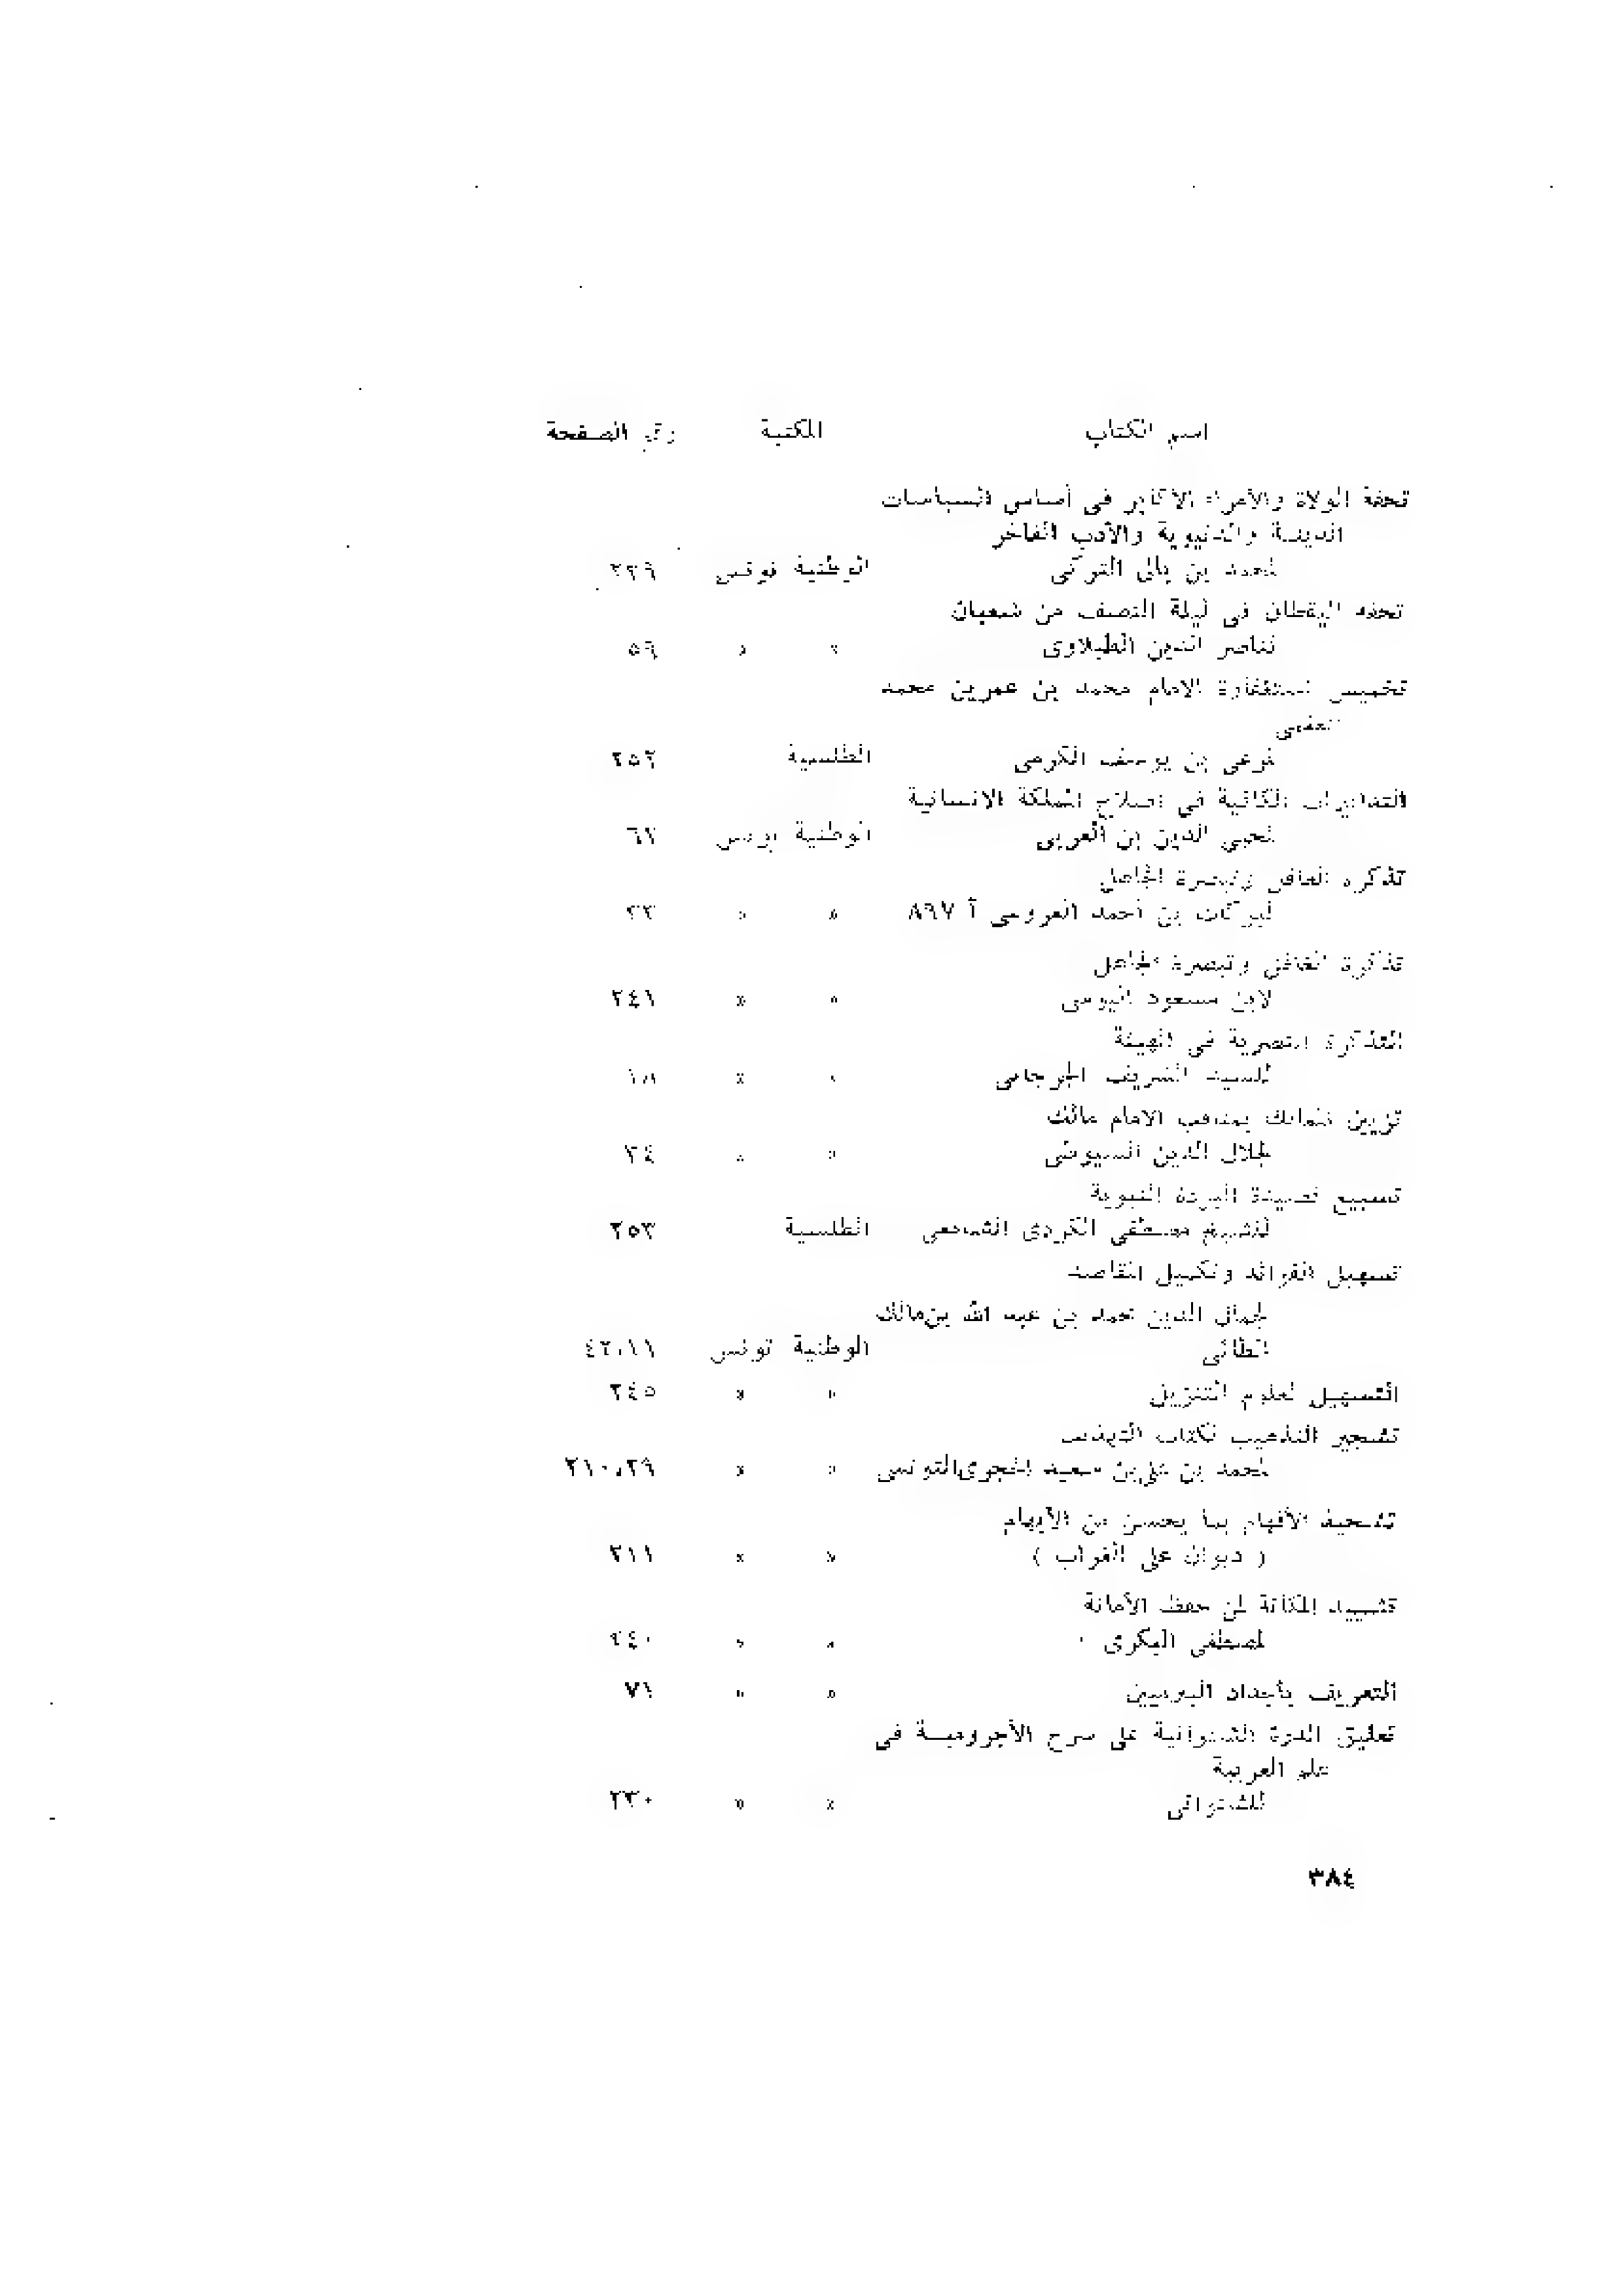 اسم الكتاب المكتبة رقم الصفحة
تحفة الولاة والأمراء الأكابر فى أساس السياسات
الدينية والدنيوية والأدب الفاخر
لمحمد بن بالى التركى الوطنية تونس ٢٢٩
تحفة اليقظان فى ليلة النصف من شعبان
لناصر الدين الطبلاوى » » ٥٦
تخميس استغفارة الامام محمد بن عمر بن محمد
لمرعى بن يوسف الكرمى الطلسية ٢٥٢
التدابيرات الكافية فى اصلاح المملكة الانسانية
لمحيى الدين بن العربى الوطنية تونس ٦٧
تذكرة الغافل وتبصرة الجاهل
لبركات بن أحمد العروسى آ ٨٩٧ » »
تذكرة الغافل وتبصرة الجاهل
لابن مسعود اليوسى » » ٢٤١
التذكرة النصرية فى الهيئة
للسيد الشريف الجرجانى » »
تزيين الممالك بمناقب الامام مالك
لجلال الدين السيوطى » » ٢٤
تسبيع قصيدة البردة النبوية
للشيخ مصطفى الكردى الشافعى الطلسية ٢٥٣
تسهيل الفوائد وتكميل المقاصد
لجمال الدين محمد بن عبد الله بن مالك
الطائى الوطنية تونس ٤٢،١١
التسهيل لعلوم التنزيل » » ٢٤٥
تشجير التذهيب لكتاب التهذيب
لمحمد بن على بن سعيد الحجرى التونسى » » ٢١٠،٢٩
تشحيذ الأفهام بما يحسن من الأيهام
( ديوان على الغراب ) » » ٢١١
تشييد المكانة لمن حفظ الأمانة
لمصطفى البكرى » » ٢٤٠
التعريف بأجداد اليوسيين » » ٧١
تعليق الدرة الشنوانية على شرح الأجرومية فى
علم العربية
للشنوانى » » ٢٣٠
٣٨٤